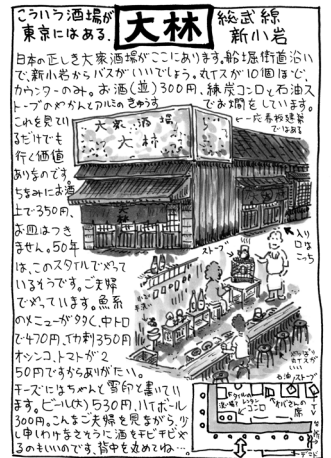 こういう酒場が
東京にはある、
大林
総武線
新小岩
日本の正しき大衆酒場がここにあります。船堀街道沿い
で、新小岩からバスがいいでしょう。丸イスが10個ほど、
カウンターのみ。お酒(並)300円、練炭コンロと石油ス
トーブのやかんとアルミのきゅうすでお燗をしています。
これを見てい
るだけでも
行く価値
ありなのです。
ちなみにお酒
上で350円、
お皿はつき
ません。50年
は、このスタイルでやって
いるそうです。ご夫婦
でやっています。魚系
のメニューが多く、中トロ
で470円、イカ刺350円
オシンコ、トマトが2
50円ですからありがたい。
チーズにはちゃんと雪印と書いてい
ます。ビール(大)530円、ハイボール
300円。こんなご夫婦を見ながら、少
し申しわけなさそうに酒をチビチビや
るのもいいのです、背中を丸めてね…。
大衆酒場
大林
ストーブ
入り
口は
こっち
石油ストーブ
コンロ